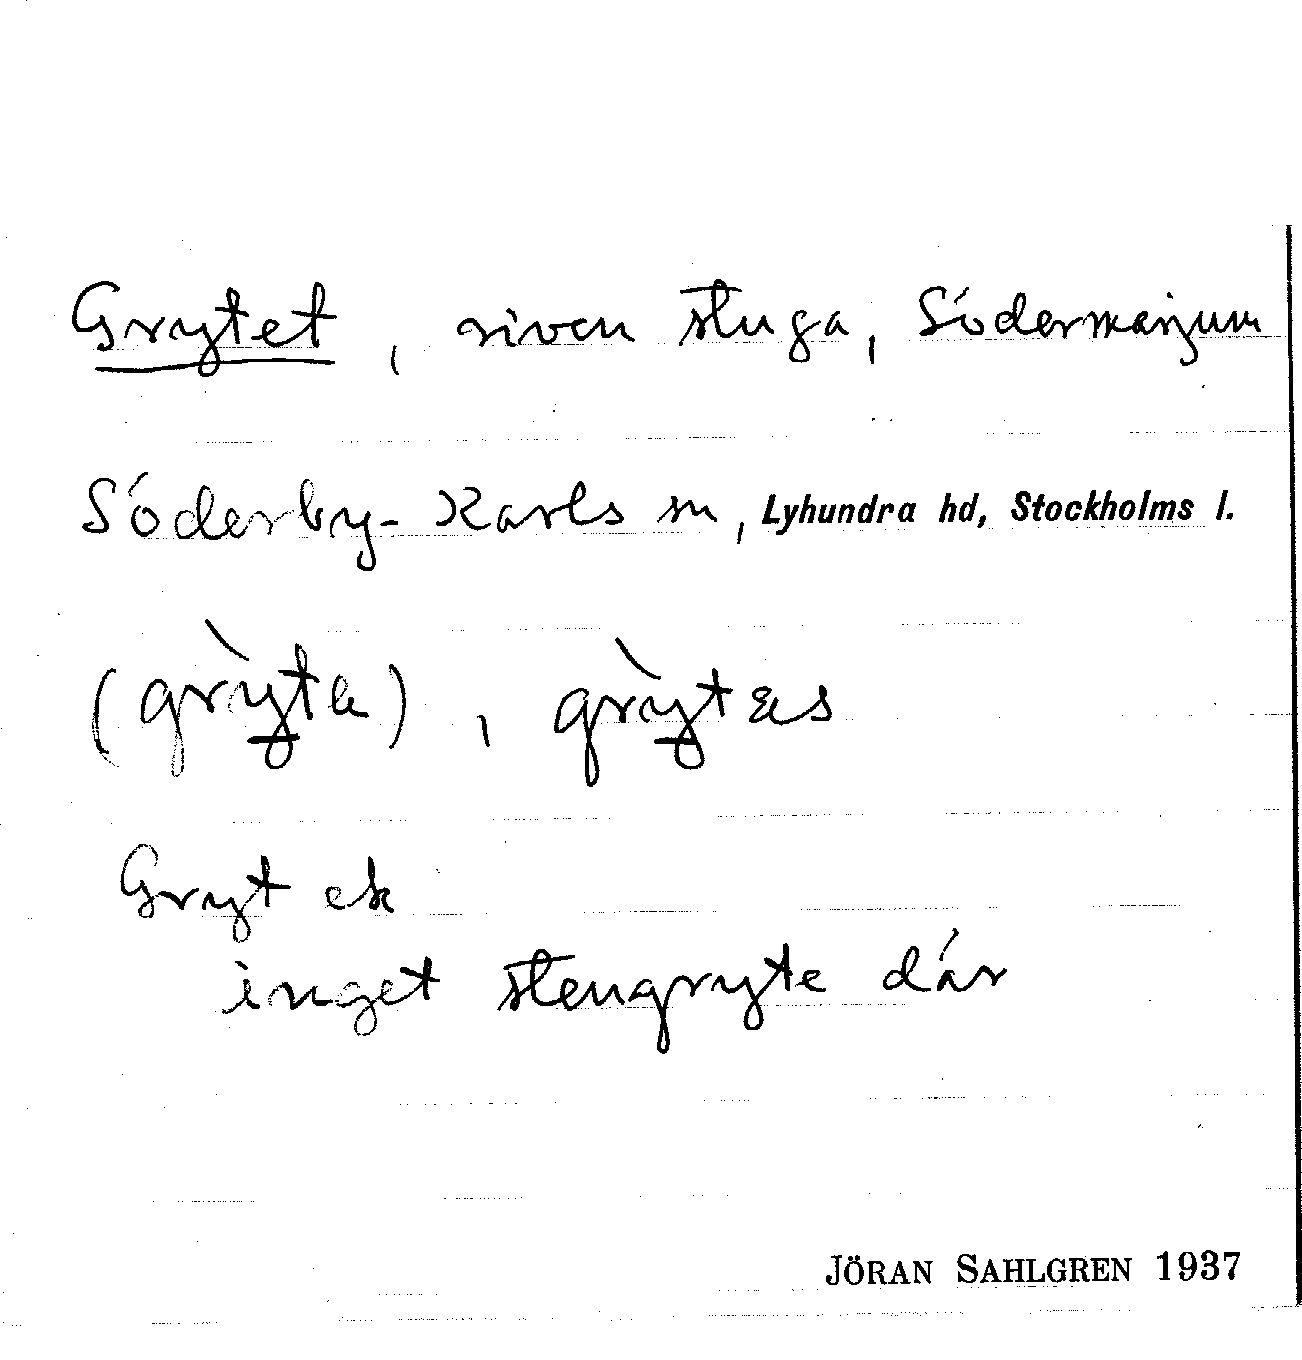 Grytet, riven stuga, Södermarjum
Söderby-Karls sn, Lyhundra hd, Stockholms l.
(grỳtα), grỳtæs
Gryt ek
inget stengryte där
JÖRAN SAHLGREN 1937